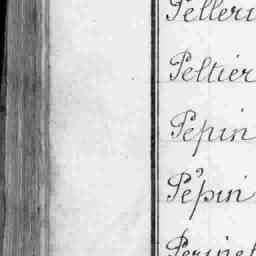 Pelleri
Peltier
Pepin
Pépin
Perinel